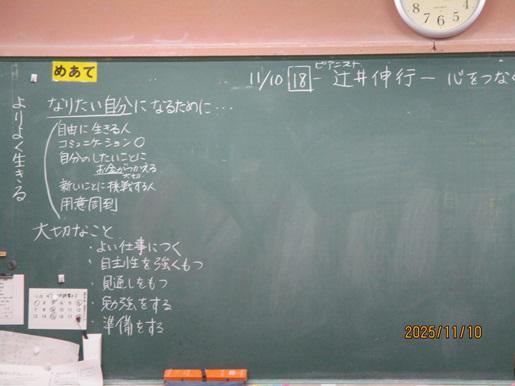 めあて
11/10 18 -辻井伸行- 心をつな
ピアニスト
よりよく生きる
なりたい自分になるために…
自由に生きる人
コミュニケーション〇
自分のしたいことに
お金がつかえる
大切
新しいことに挑戦する人
用意周到
大切なこと
・よい仕事につく
・自主性を強くもつ
・見通しをもつ
・勉強をする
・準備をする
2025/11/10
8 7 6 5 4